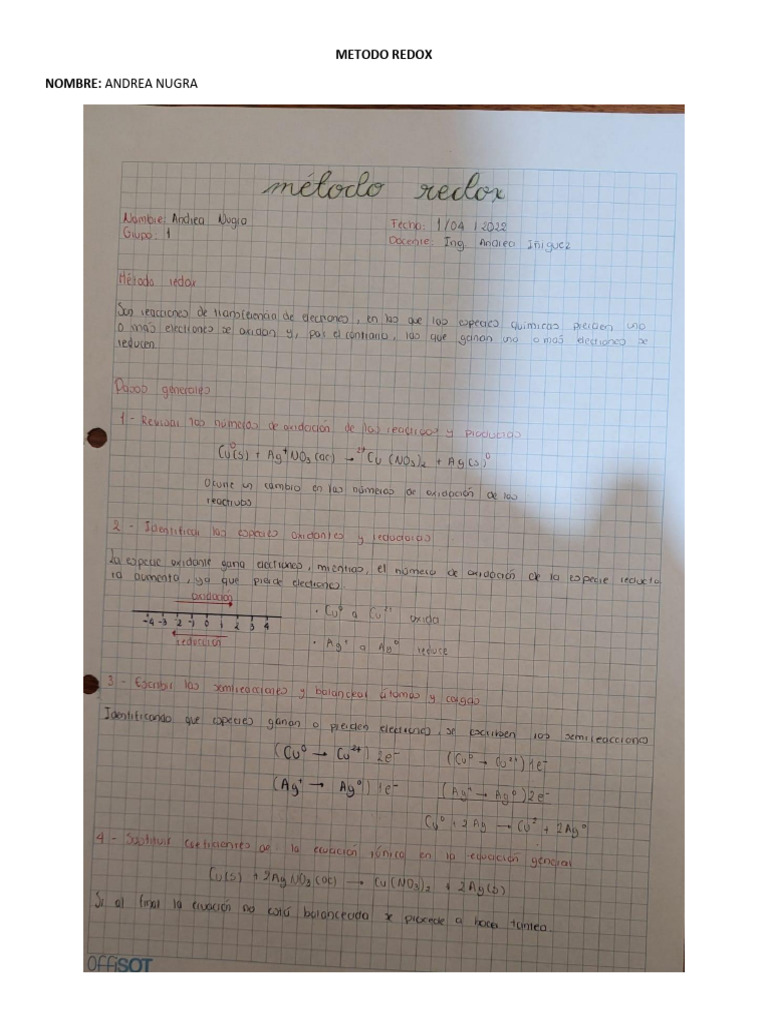 METODO REDOX
NOMBRE: ANDREA NUGRA
método redox
Nombre: Andrea Nugra
Fecha: 1/04/2022
Grupo: 1
Docente: Ing. Andrea Iñiguez
Método redox
Son reacciones de transferencia de electrones, en las que las especies químicas pierden uno
o más electrones se oxidan y, por el contrario, las que ganan uno o más electrones se
reducen
Pasos generales
1- Revisar los números de oxidación de los reactivos y productos
Cu⁰(s) + Ag⁺NO₃(ac) → ²⁺Cu(NO₃)₂ + Ag(s)⁰
Ocurre un cambio en los números de oxidación de los
reactivos
2- Identificar las especies oxidantes y reductoras
La especie oxidante gana electrones, mientras, el número de oxidación de la especie reducto
ra aumenta, ya que pierde electrones.
oxidación
-4 -3 -2 -1 0 1 2 3 4
reducción
• Cu⁰ a Cu²⁺ oxida
• Ag⁺ a Ag⁰ reduce
3- Escribir las semireacciones y balancear átomos y cargas
Identificando que especies ganan o pierden electrones, se escriben las semireacciones
(Cu⁰ → Cu²⁺) 2e⁻ (Cu⁰ → Cu²⁺) 1e⁻
(Ag⁺ → Ag⁰) 1e⁻ (Ag⁺ → Ag⁰) 2e⁻
Cu⁰ + 2Ag → Cu² + 2Ag⁰
4- Sustituir coeficientes de la ecuación iónica en la ecuación general
Cu(s) + 2AgNO₃(ac) → Cu(NO₃)₂ + 2Ag(s)
Si al final la ecuación no está balanceada se procede a hacer tanteo.
OFFISOT